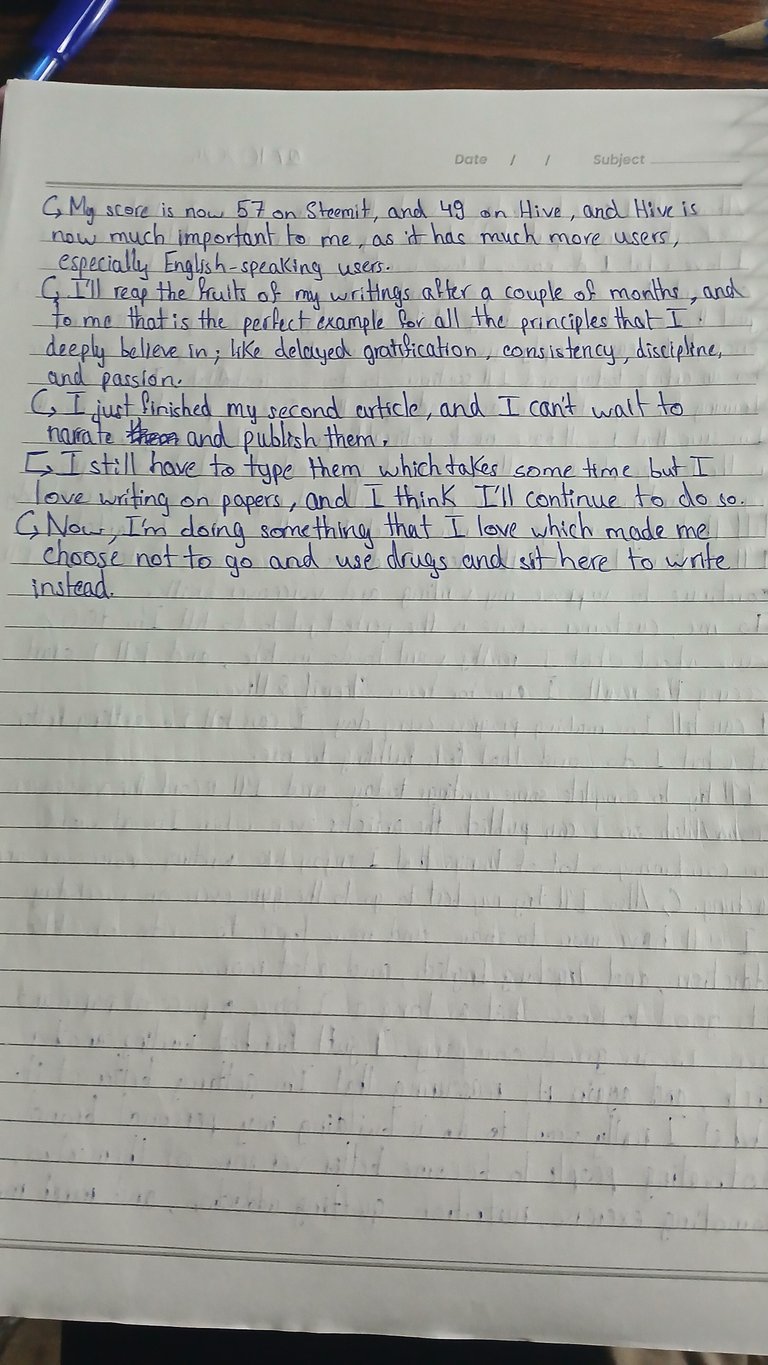 Date / / Subject
My score is now 57 on Steemit, and 49 on Hive, and Hive is
now much important to me, as it has much more users,
especially English-speaking users.
I'll reap the fruits of my writings after a couple of months, and
to me that is the perfect example for all the principles that I
deeply believe in; like delayed gratification, consistency, discipline,
and passion.
I just finished my second article, and I can't wait to
narrate and publish them.
I still have to type them which takes some time but I
love writing on papers, and I think I'll continue to do so.
Now, I'm doing something that I love which made me
choose not to go and use drugs and sit here to write
instead.